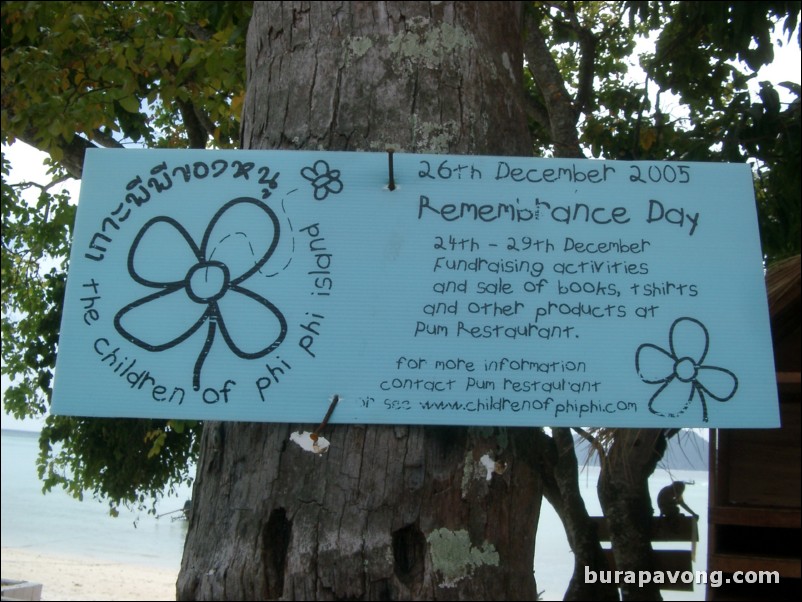 เกาะพีพีของหนู
the children of phi phi island
26th December 2005
Remembrance Day
24th - 29th December
Fundraising activities
and sale of books, tshirts
and other products at
Pum Restaurant.
for more information
contact Pum restaurant
or see www.childrenofphiphi.com
burapavong.com